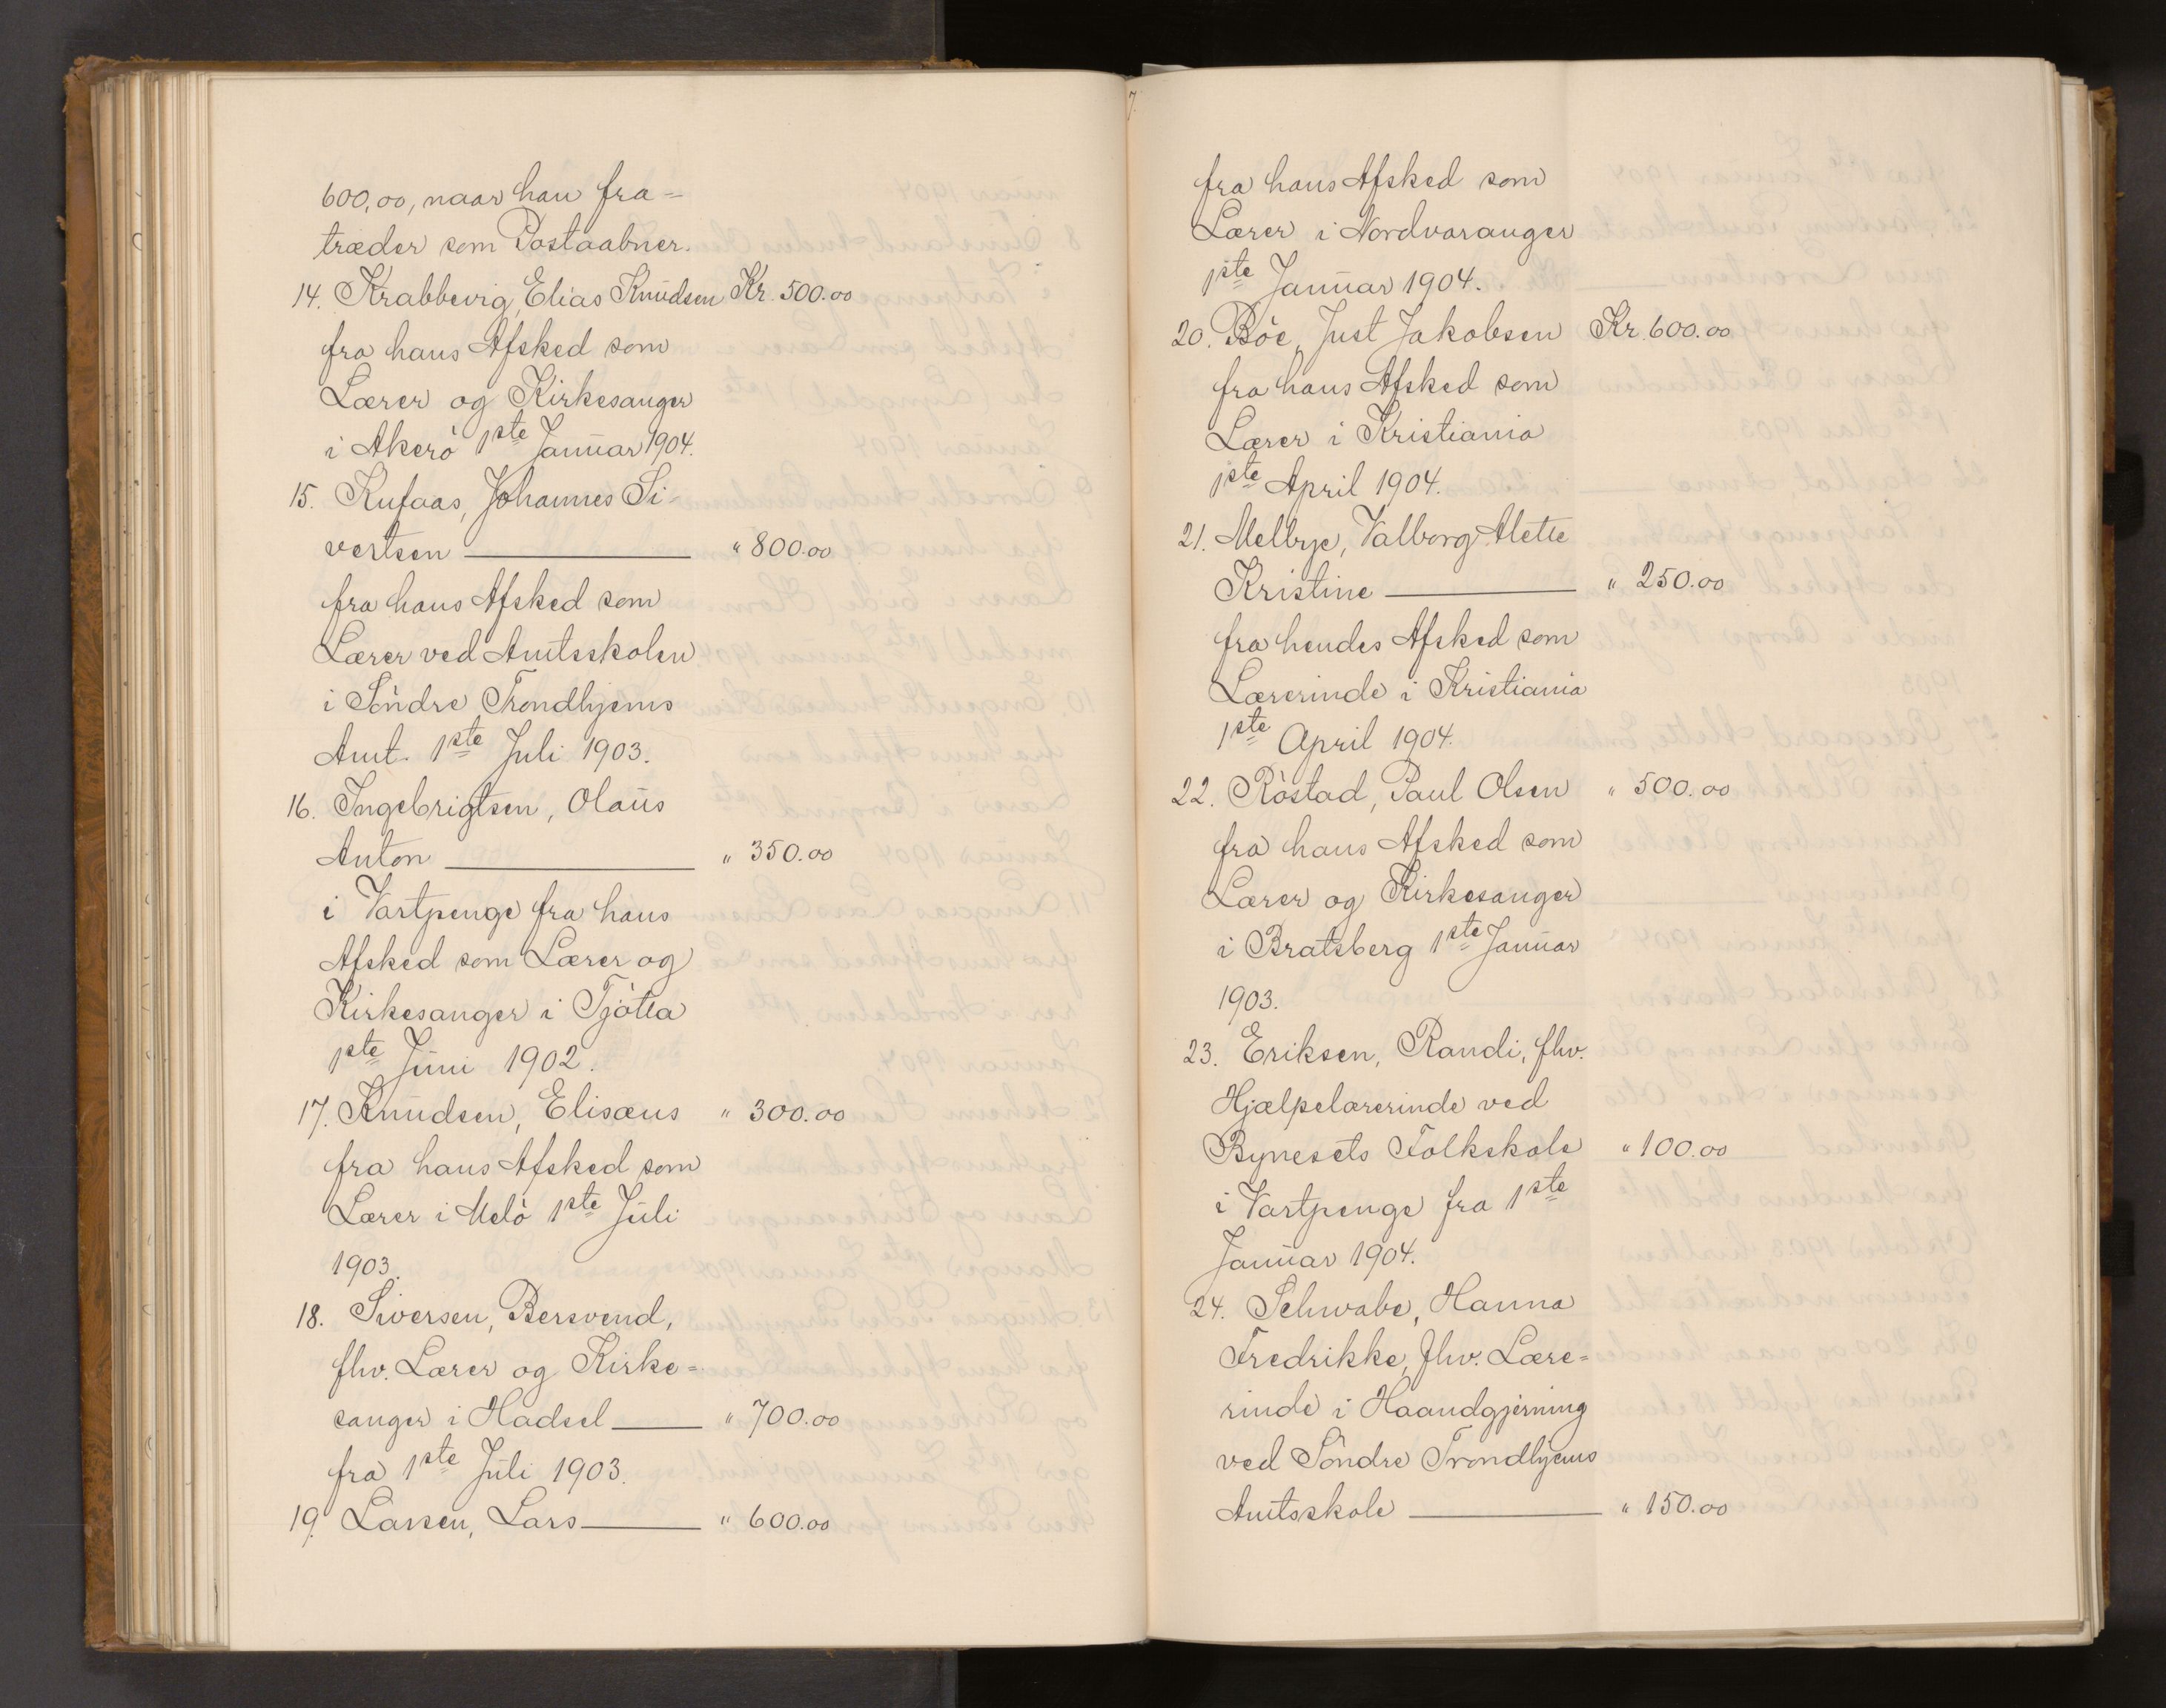 600,00, naar han fra=
træder som Postaabner.
14. Krabbevig, Elias Knudsen Kr. 500.00
fra hans Afsked som
Lærer og Kirkesanger
i Akerö 1ste Januar 1904.
15. Kufaas, Johannes Si-
vertsen " 800.00
fra hans Afsked som
Lærer ved Amtsskolen
i Söndre Trondhjems
Amt. 1ste Juli 1903.
16. Ingebrigtsen, Olaus
Anton " 350.00
i Vartpenge fra hans
Afsked som Lærer og
Kirkesanger i Tjötta
1ste Juni 1902.
17. Knudsen, Elisæus " 300.00
fra hans Afsked som
Lærer i Melö 1ste Juli
1903.
18. Siversen, Bersvend,
fhv. Lærer og Kirke=
sanger i Hadsel " 700.00
fra 1ste Juli 1903.
19. Larsen, Lars " 600.00
7.
fra hans Afsked som
Lærer i Nordvaranger
1ste Januar 1904.
20. Böe, Just Jakobsen Kr. 600.00
fra hans Afsked som
Lærer i Kristiania
1ste April 1904.
21. Melbye, Valborg Alette
Kristine " 250.00
fra hendes Afsked som
Lærerinde i Kristiania
1ste April 1904.
22. Röstad, Paul Olsen " 500.00
fra hans Afsked som
Lærer og Kirkesanger
i Bratsberg 1ste Januar
1903.
23. Eriksen, Randi, fhv.
Hjælpelærerinde ved
Bynesets Folkskole " 100.00
i Vartpenge fra 1ste
Januar 1904.
24. Schwabe, Hanna
Fredrikke, fhv. Lære=
rinde i Haandgjerning
ved Söndre Trondhjems
Amtsskole " 150.00